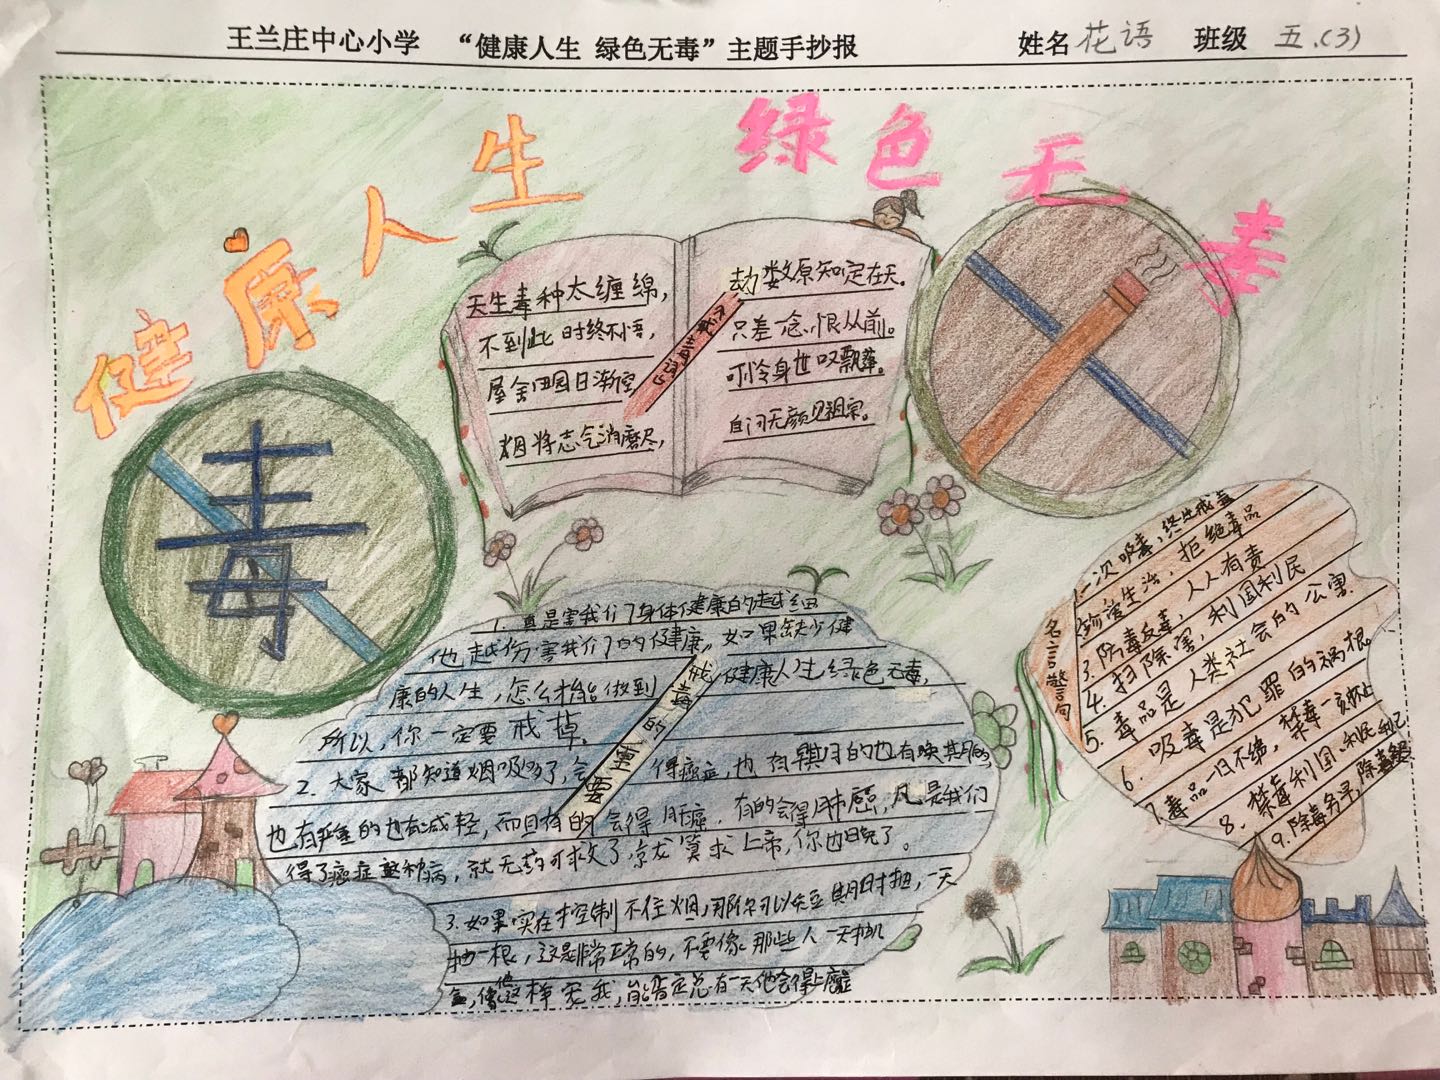 王兰庄中心小学 “健康人生 绿色无毒”主题手抄报 姓名 花语 班级 五.(3)
健康人生 绿色无毒
毒
天生毒种太缠绵，
不到此时终不悟，
屋舍田园日渐空
烟将志气消磨尽，
劫数原知定在天。
只差一念恨从前。
可怜身世叹飘蓬。
自问无颜见祖宗。
戒毒的重要
他越伤害我们的健康。如果缺少健
康的人生，怎么才能做到健康人生绿色无毒，
所以，你一定要戒掉。
2. 大家都知道烟吸多了，会得癌症，也
也有严重的也有减轻，而且有的会得肝癌，有的会得肺癌，凡是我们
得了癌症这种病，就无药可救了 上帝，你也晚了。
3. 如果实在控制不住烟，那你可以短期时抽，一天
抽一根，这是非常正常的，不要像那些人一天抽几
盒，
名言警句
1. 一次吸毒，终生戒毒
2. 珍爱生活，拒绝毒品
3. 防毒反毒，人人有责
4. 扫除害，利国利民
5. 毒品是人类社会的公害
6. 吸毒是犯罪的祸根。
7. 毒品一日不绝，禁毒一刻不止
8. 禁毒利国、利民利己
9. 除毒务早，除毒务